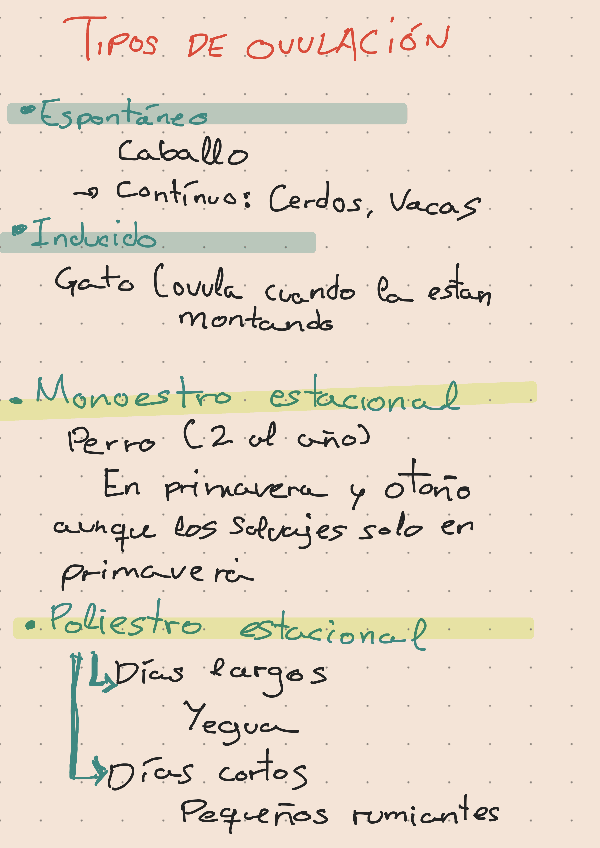 TIPOS DE OVULACIÓN
• Espontáneo
Caballo
→ Contínuo: Cerdos, Vacas
• Inducido
Gato (ovula cuando la estan
montando
• Monoestro estacional
Perro (2 al año)
En primavera y otoño
aunque los salvajes solo en
primavera
• Poliestro estacional
Días largos
Yegua
Días cortos
Pequeños rumiantes